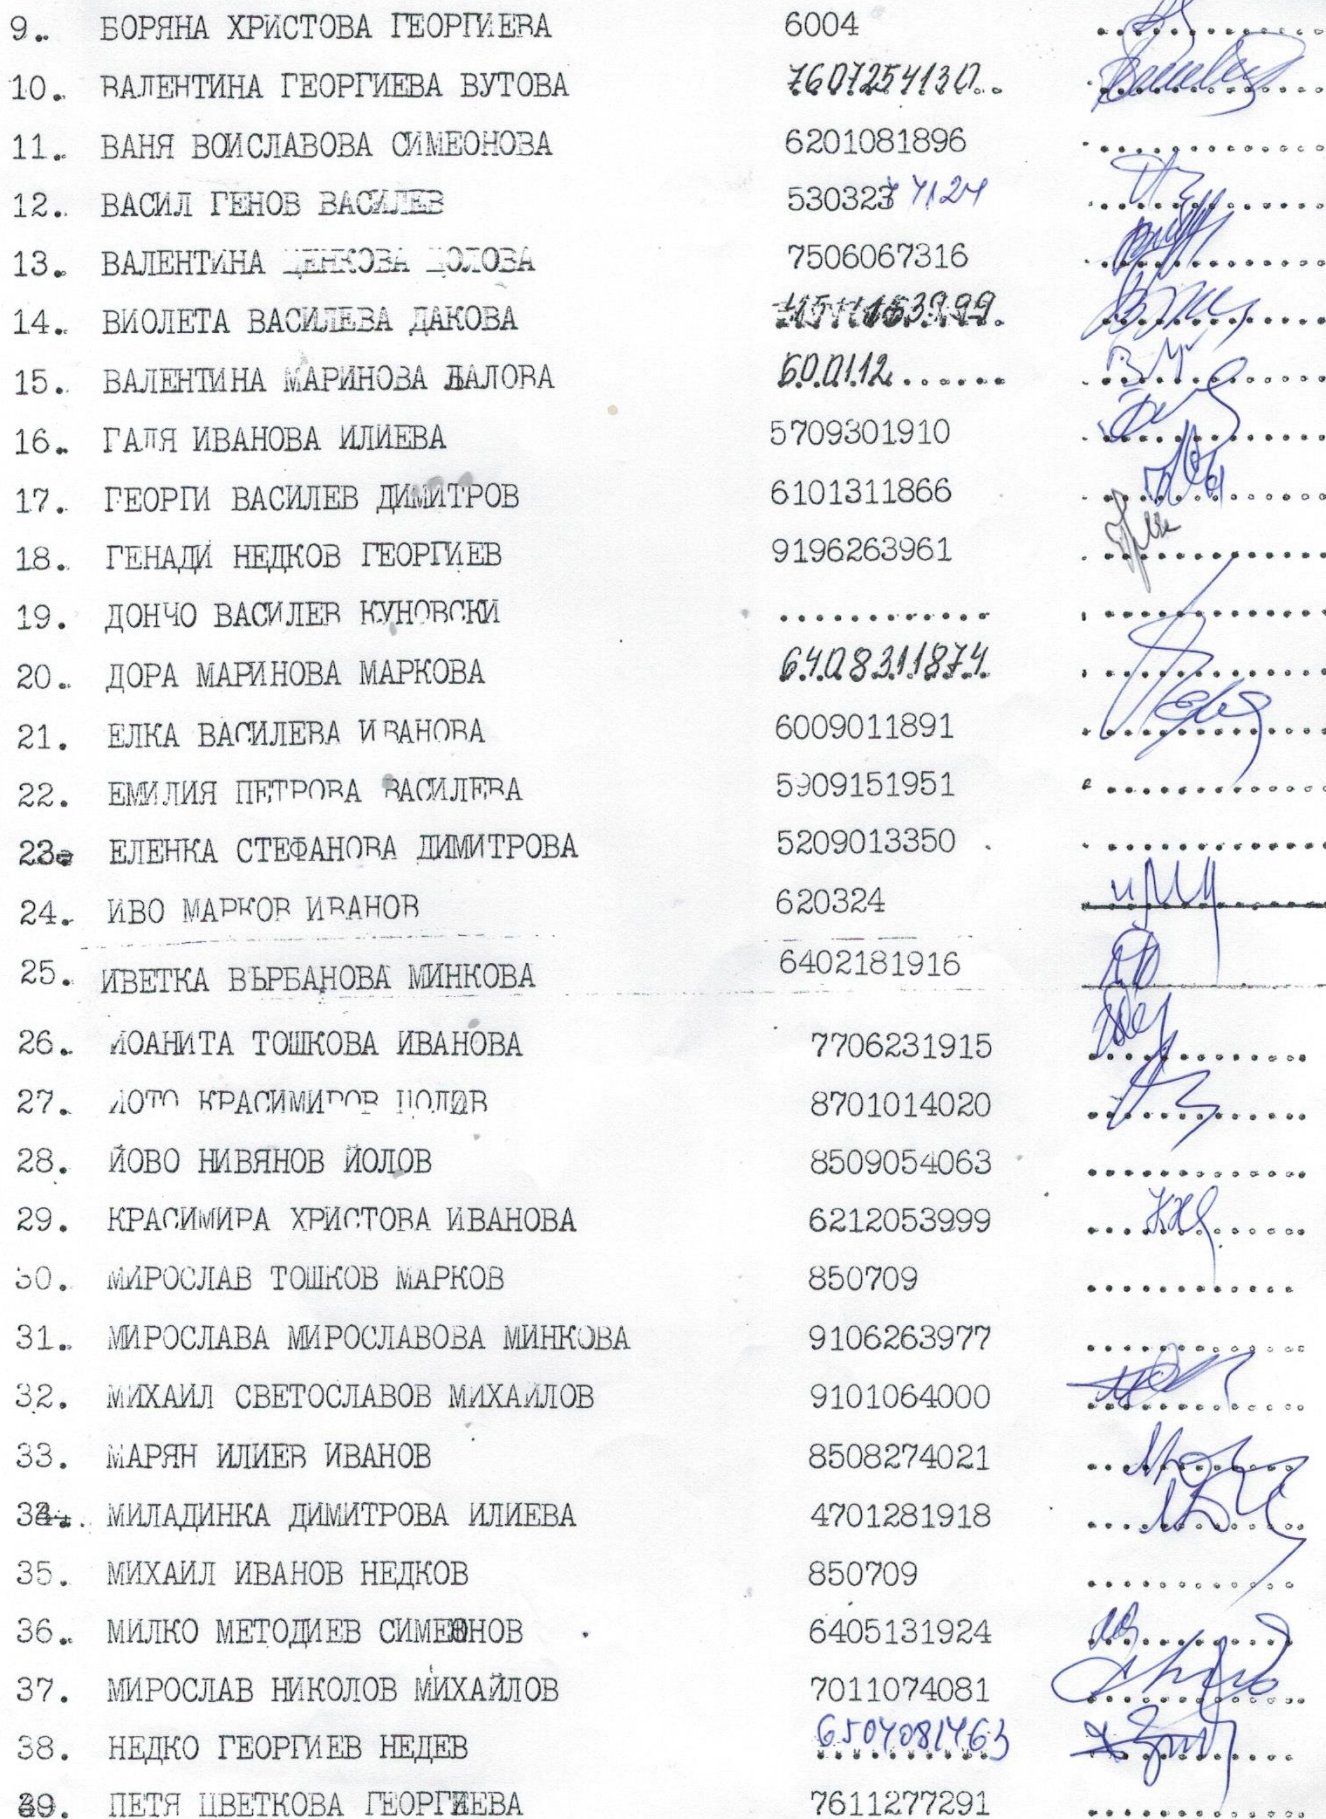 9. БОРЯНА ХРИСТОВА ГЕОРГИЕВА 6004
10. ВАЛЕНТИНА ГЕОРГИЕВА ВУТОВА 7607254130
11. ВАНЯ ВОИСЛАВОВА СИМЕОНОВА 6201081896
12. ВАСИЛ ГЕНОВ ВАСИЛЕВ 530323
13. ВАЛЕНТИНА ЦЕНКОВА ЦОЛОВА 7506067316
14. ВИОЛЕТА ВАСИЛЕВА ДАКОВА
15. ВАЛЕНТИНА МАРИНОВА 600112
16. ГАЛЯ ИВАНОВА ИЛИЕВА 5709301910
17. ГЕОРГИ ВАСИЛЕВ ДИМИТРОВ 6101311866
18. ГЕНАДИ НЕДКОВ ГЕОРГИЕВ 9196263961
19. ДОНЧО ВАСИЛЕВ КУНОВСКИ
20. ДОРА МАРИНОВА МАРКОВА 6408311874
21. ЕЛКА ВАСИЛЕВА ИВАНОВА 6009011891
22. ЕМИЛИЯ ПЕТРОВА ВАСИЛЕВА 5909151951
23. ЕЛЕНКА СТЕФАНОВА ДИМИТРОВА 5209013350
24. ИВО МАРКОВ ИВАНОВ 620324
25. ИВЕТКА ВЪРБАНОВА МИНКОВА 6402181916
26. ЙОАНИТА ТОШКОВА ИВАНОВА 7706231915
27. ЙОТО КРАСИМИРОВ ЦОЛОВ 8701014020
28. ЙОВО НИВЯНОВ ЙОЛОВ 8509054063
29. КРАСИМИРА ХРИСТОВА ИВАНОВА 6212053999
30. МИРОСЛАВ ТОШКОВ МАРКОВ 850709
31. МИРОСЛАВА МИРОСЛАВОВА МИНКОВА 9106263977
32. МИХАИЛ СВЕТОСЛАВОВ МИХАЙЛОВ 9101064000
33. МАРЯН ИЛИЕВ ИВАНОВ 8508274021
34. МИЛАДИНКА ДИМИТРОВА ИЛИЕВА 4701281918
35. МИХАИЛ ИВАНОВ НЕДКОВ 850709
36. МИЛКО МЕТОДИЕВ СИМЕОНОВ 6405131924
37. МИРОСЛАВ НИКОЛОВ МИХАЙЛОВ 7011074081
38. НЕДКО ГЕОРГИЕВ НЕДЕВ 6504081463
39. ПЕТЯ ЦВЕТКОВА ГЕОРГИЕВА 7611277291